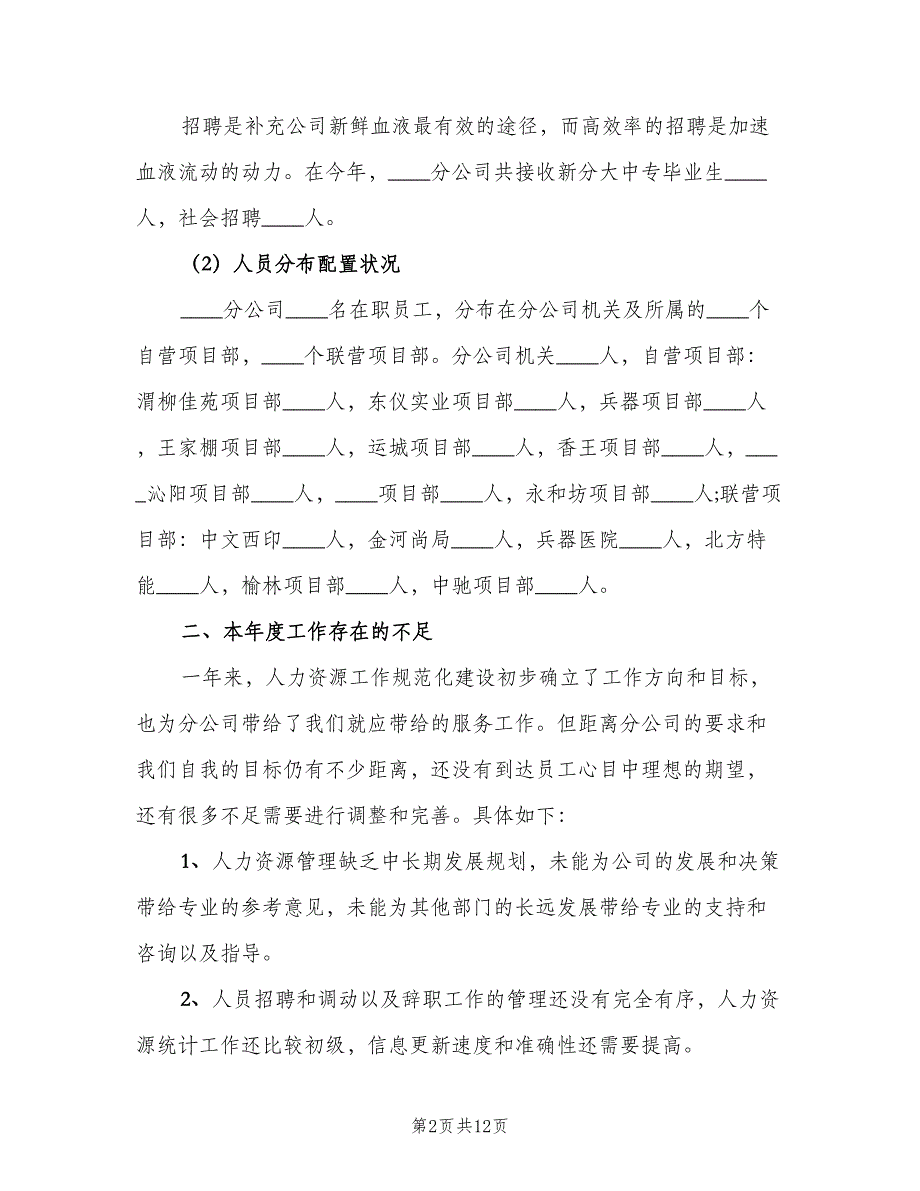 招聘是补充公司新鲜血液最有效的途径，而高效率的招聘是加速
血液流动的动力。在今年，____分公司共接收新分大中专毕业生____
人，社会招聘____人。
（2）人员分布配置状况
____分公司____名在职员工，分布在分公司机关及所属的____个
自营项目部，____个联营项目部。分公司机关____人，自营项目部：
渭柳佳苑项目部____人，东仪实业项目部____人，兵器项目部____人
，王家棚项目部____人，运城项目部____人，香王项目部____人，___
_沁阳项目部____人，____项目部____人，永和坊项目部____人;联营项
目部：中文西印____人，金河尚局____人，兵器医院____人，北方特
能____人，榆林项目部____人，中驰项目部____人。
二、本年度工作存在的不足
一年来，人力资源工作规范化建设初步确立了工作方向和目标，
也为分公司带给了我们就应带给的服务工作。但距离分公司的要求和
我们自我的目标仍有不少距离，还没有到达员工心目中理想的期望，
还有很多不足需要进行调整和完善。具体如下：
1、人力资源管理缺乏中长期发展规划，未能为公司的发展和决策
带给专业的参考意见，未能为其他部门的长远发展带给专业的支持和
咨询以及指导。
2、人员招聘和调动以及辞职工作的管理还没有完全有序，人力资
源统计工作还比较初级，信息更新速度和准确性还需要提高。
第2页共12页